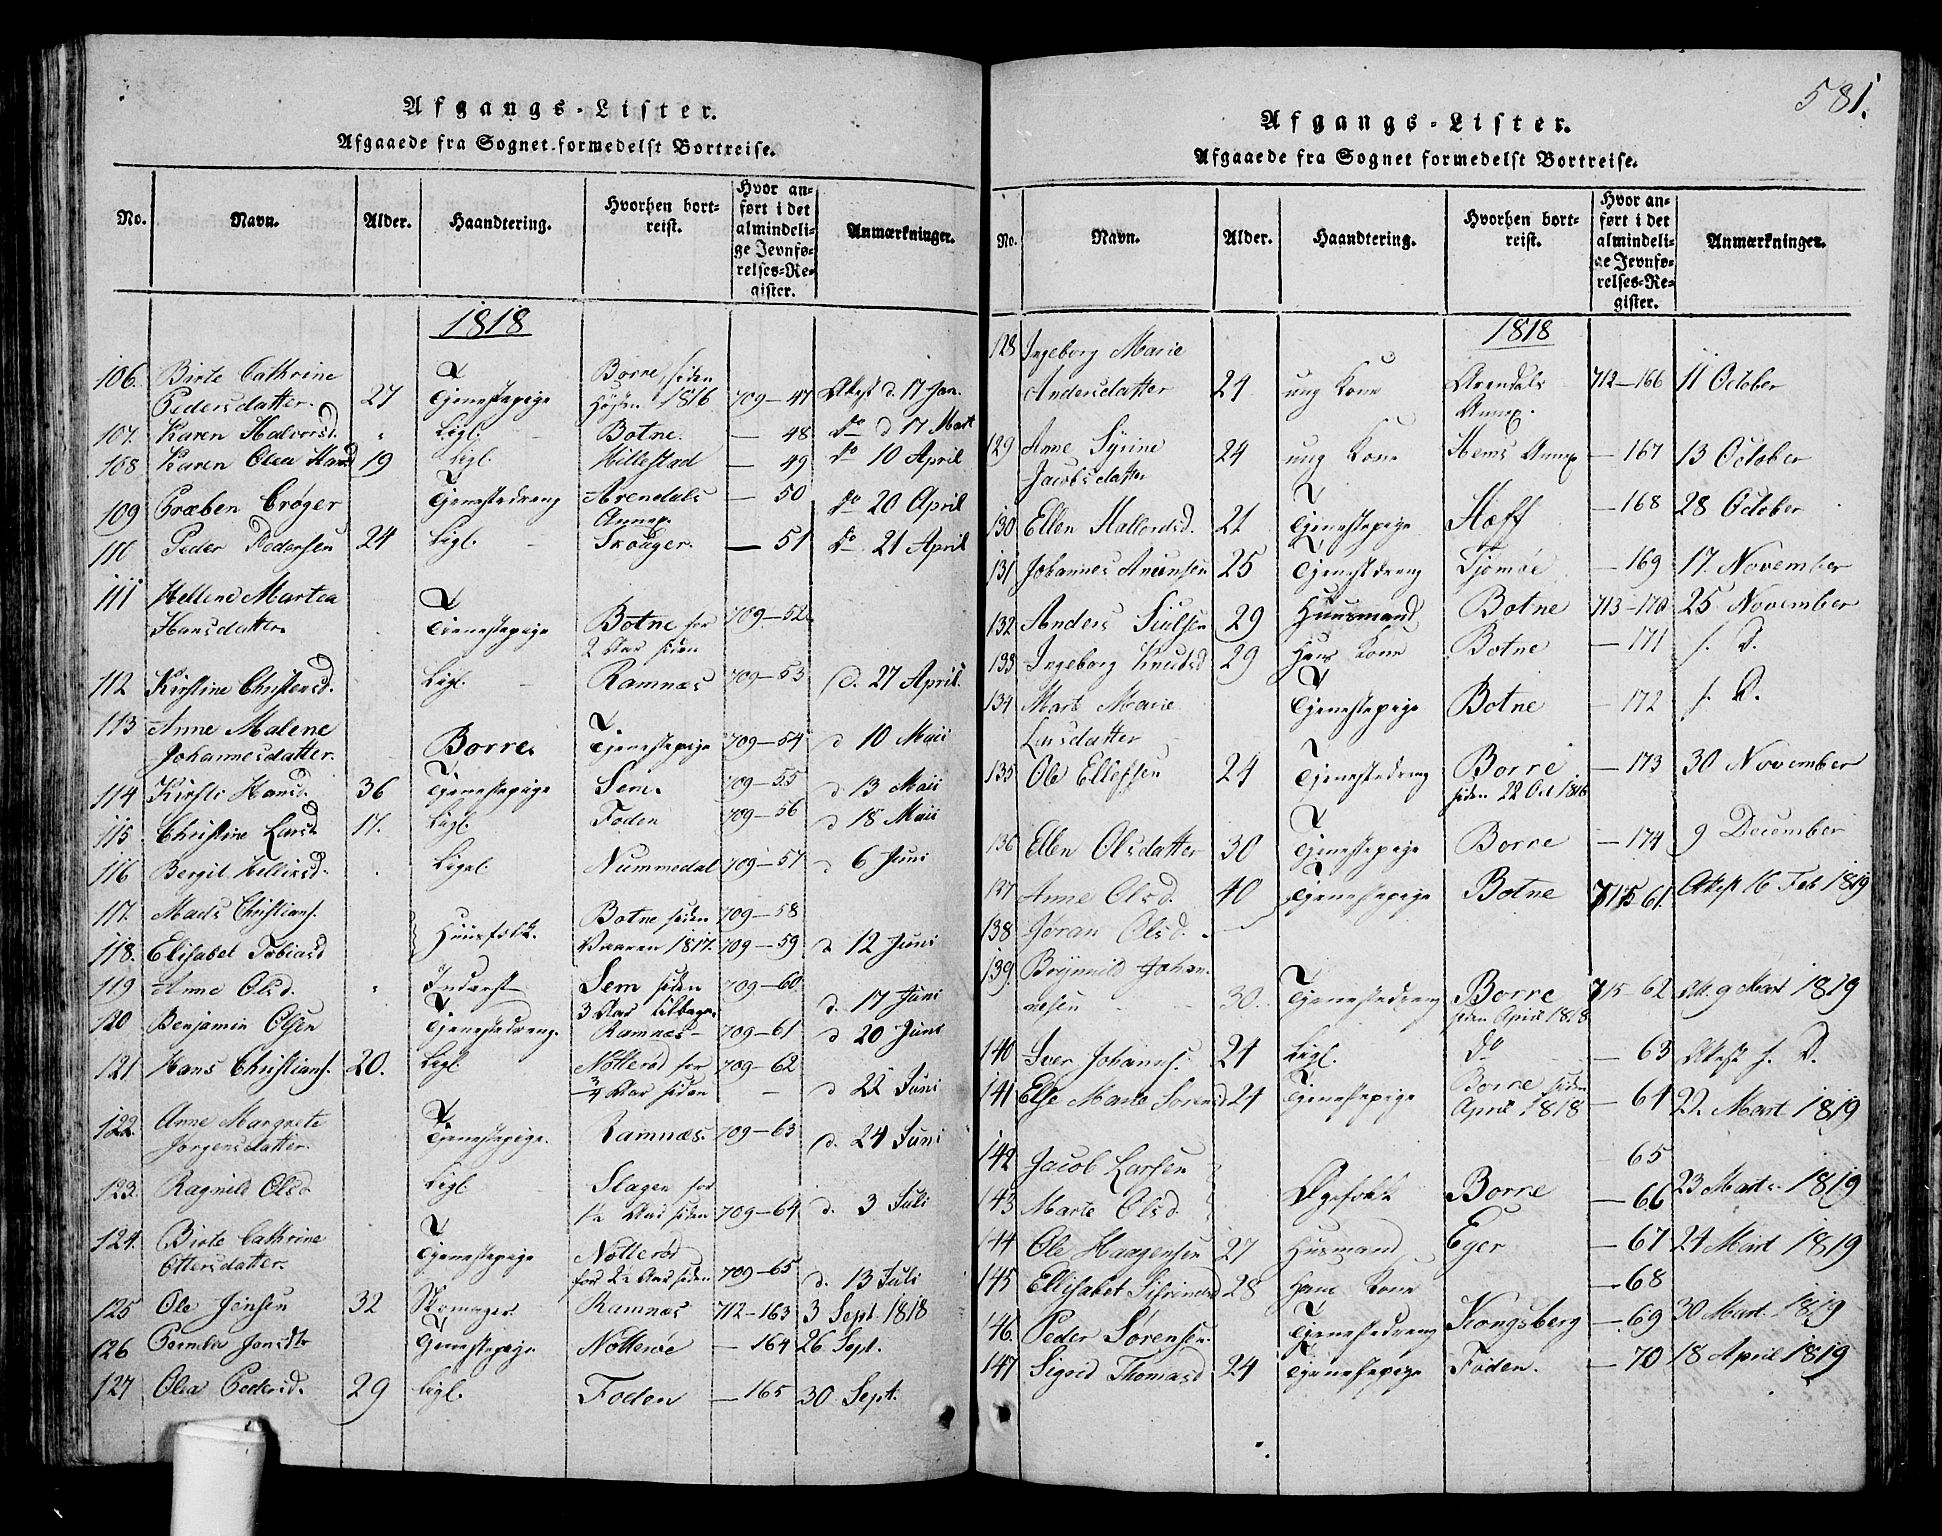 Afgangs-Lister.
Afgaaede fra Sognet formedelst Bortreise.
No. Navn. Alder. Haandtering. Hvorhen bortreist. Hvor anført i det almindelige Jevnførelses-Register. Anmærkninger.
1818
106. Birte Cathrine Borre, siden
Pedersdatter. 27 Tjenestepige 1816 709-47 Attest d. 17 Jan.
107. Karen Halvorsd. Ligl. Botne. - 48 do d 17 Mart
108. Karen Olea Hansd 19 Ligl. Hillestad - 49 do 10 April
109 Præben Crøger Tjenestedreng Arendals Annex. - 50 do 20 April
110 Peder Pedersen 24 Ligl. Skouger. - 51 do 21 April
111 Hellene Martea
Hansdatter. Tienestepige Botne for 709-52
2 Aar siden
112 Kirstine Christensd. Ligl. Ramnæs 709-53 d. 27 April.
113 Anne Malene
Johannesdatter. Borre. Tjenestepige 709-54 d 10 Maii
114 Kirsti Hansd. 36 Tjenestepige Sem. 709-55 d 13 Maii
115 Christine Larsd. 17. Ligl. Foden 709-56 d 18 Maii
116 Bergit Ligel. Nummedal 709-57 d 6 Juni
117. Mads Christians. Botne siden 709-58
118. Elisabet Tobiasd Huusfolk. Vaaren 1817. 709-59 d 12 Juni
119 Anne Olsd. Inderst Sem siden 709-60
3 Aar tilbage. d. 17 Juni
120 Benjamin Olsen Tjenestedreng. Ramnæs- 709-61 d 20 Juni
121. Hans Christians. 20. Ligl. Nøtterød for 709-62
3/4 Aar siden - d 22 Juni
122. Anne Margrete
Jørgensdatter. Tjenestepige. Ramnæs. 709-63 d. 24 Juni
123. Ragnild Olsd Ligl. Slagen for
1½ Aar siden 709-64 d. 3 Juli
124. Birte Cathrine
Ottersdatter. Tjenestepige Nøtterød
for 2½ Aar siden 709-65 d. 13 Juli
125 Ole Jensen 32 Skomager Ramnæs 712-163 3 Sept. 1818
126 Jonsdtr Tjenestepige Nøtterøe - 164 26 Sept.
127 Olea Pedersd. 29 Ligl. Foden - 165 30 Sept.
581.
Afgangs-Lister.
Afgaaede fra Sognet formedelst Bortreise.
No. Navn. Alder. Haandtering. Hvorhen bortreist. Hvor anført i det almindelige Jevnførelses-Register. Anmærkninger.
1818
128 Ingeborg Marie
Andersdatter 24 ung Kone Arendals Annex. 712-166 11 October
129 Anne Syrine
Jacobsdatter 24 ung Kone Hems Annex - 167 13 October
130 Ellen Hallordsd. 21 Tjenestepige Hæff - 168 28 October
131 Johannes Anunsen 25 Tjenestdreng Tjømøe - 169 17. November
132 Anders Siulsen 29 Huusmand Botne 713-170 25 November
133 Ingeborg Knudsd 29 Hans Kone Botne - 171 s. D.
134 Mart Marie
Larsdatter Tjenestepige Botne - 172 s. D.
135 Ole Ellefsen 24 Tjenestedreng Borre - 173 30 November
siden 22 Oct 1816
136 Ellen Olsdatter 30 Tjenestepige Borre - 174 9 December
137 Anne Olsd. 40 Tjenestepige Botne 715 61. Attest 16 Feb 1819
138 Jøran Olsd.
139 Brynnild Johannesen 30. Tjenestedreng Borre 715-62 Att. 9 Mart 1819
siden April 1818
140 Iver Johanns. 24 Ligl. do - 63 Attest s. D.
141 Else Marie Sørensd 24 Tjenestepige Borre siden
April 1818 - 64 22 Mart 1819
142 Jacob Larsen - 65
143 Marte Olsd. Ægtefolk Borre - 66 23 Mart. 1819
144 Ole Haagensen 27 Husmand Eger - 67 24 Mart 1819
145 Ellisabet 28 Hans Kone - 68
146. Peder Sørensen. Tjenestedreng Kongsberg - 69 30 Mart. 1819
147 Sigrid Thomasd 24 Tjenestepige Foden. - 70 18 April 1819